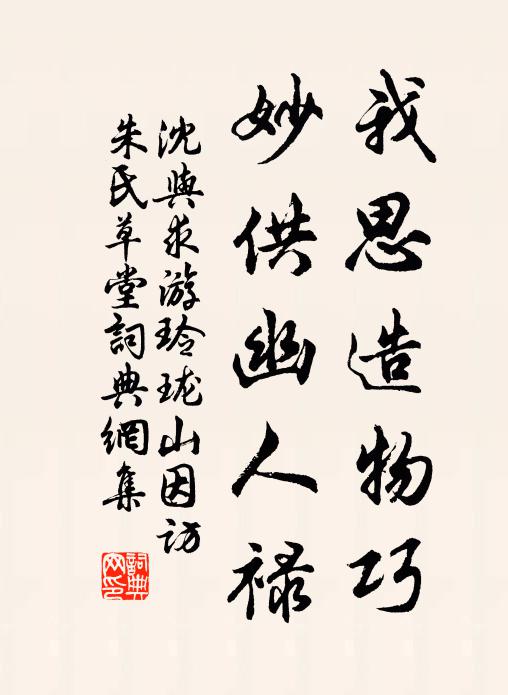 我思造物巧
妙供幽人禄
沈與求游玲珑山因访
朱氏草堂詞典網集
詞典
网印